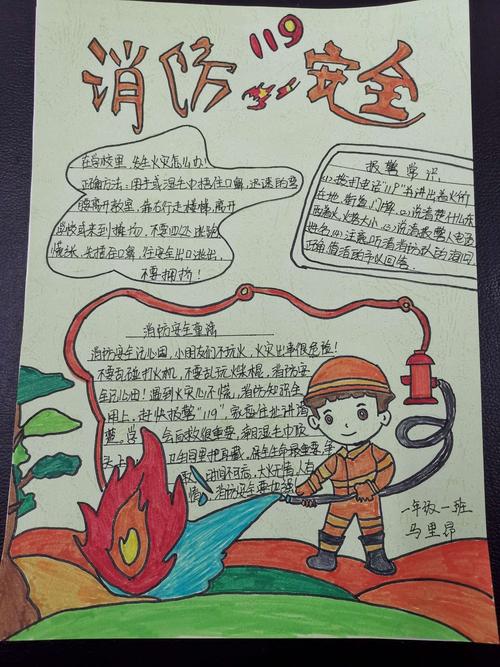 消防119安全
在学校里,发生火灾怎么办?
正确方法:用手或湿毛巾捂住口鼻,迅速的弯
腰离开教室,靠右行走楼梯,离开
学校或来到操场,不要四处
慌张,先捂住口鼻,往安全出口逃出,
不要拥挤!
报警常识
(1)拨打电话"119"书讲出着火的
在地,街道门牌,(2)说清楚什么东
西着火,火势大小,(3)说清报警人电话
姓名(4)注意听清消防队的询问
正确简洁的予以回答。
消防安全童谣
消防安全记心间,小朋友们不玩火,火灾出事很危险!
不要乱碰打火机,不要乱玩火柴棍,消防安
全记心田!遇到火灾心不慌,消防知识全
用上,赶快拨警"119",家庭住址讲清
楚。学会自救很重要,
卫生间里把身藏,保生命最重要,
时间不
情,消防安全要
一年级一班
马里昂